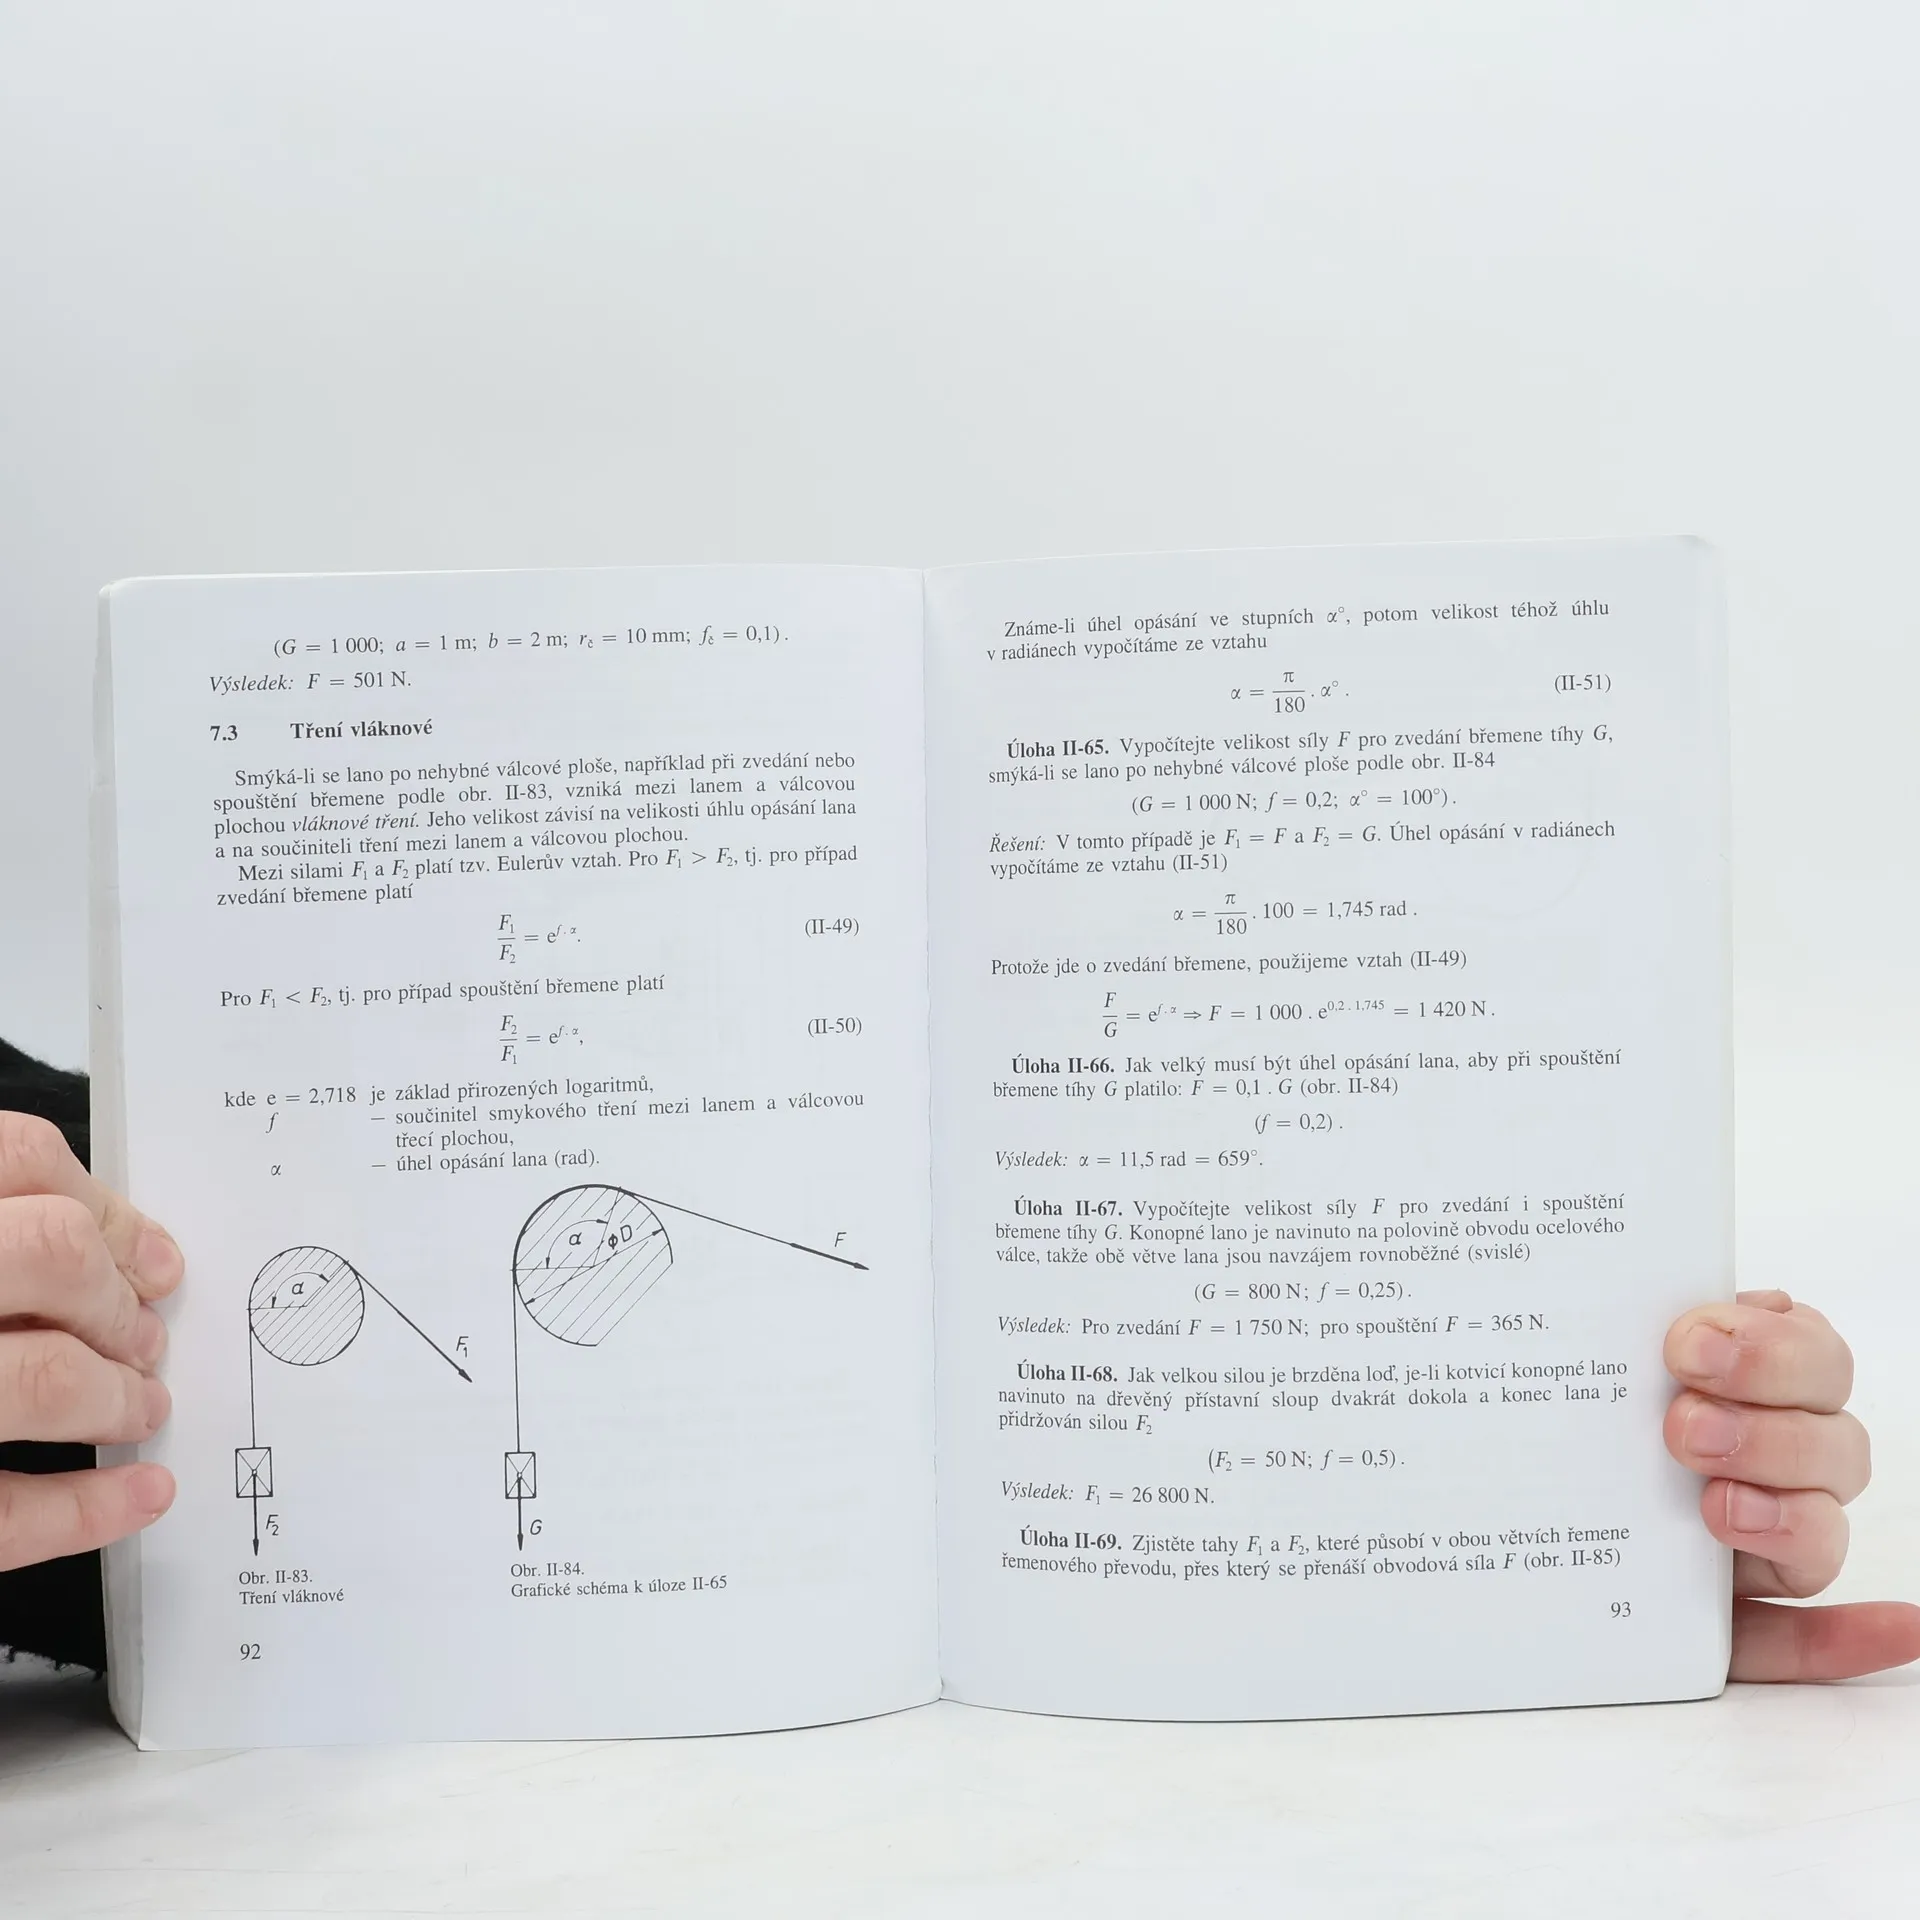 (G = 1 000; a = 1 m; b = 2 m; rč = 10 mm; fč = 0,1).
Výsledek: F = 501 N.
7.3 Tření vláknové
Smýká-li se lano po nehybné válcové ploše, například při zvedání nebo
spouštění břemene podle obr. II-83, vzniká mezi lanem a válcovou
plochou vláknové tření. Jeho velikost závisí na velikosti úhlu opásání lana
a na součiniteli tření mezi lanem a válcovou plochou.
Mezi silami F₁ a F₂ platí tzv. Eulerův vztah. Pro F₁ > F₂, tj. pro případ
zvedání břemene platí
F₁/F₂ = e^(f . α). (II-49)
Pro F₁ < F₂, tj. pro případ spouštění břemene platí
F₂/F₁ = e^(f . α), (II-50)
kde e = 2,718 je základ přirozených logaritmů,
f — součinitel smykového tření mezi lanem a válcovou
třecí plochou,
α — úhel opásání lana (rad).
α
F₁
F₂
Obr. II-83.
Tření vláknové
α
ϕD
F
G
Obr. II-84.
Grafické schéma k úloze II-65
92
Známe-li úhel opásání ve stupních α°, potom velikost téhož úhlu
v radiánech vypočítáme ze vztahu
α = π/180 . α° . (II-51)
Úloha II-65. Vypočítejte velikost síly F pro zvedání břemene tíhy G,
smýká-li se lano po nehybné válcové ploše podle obr. II-84
(G = 1 000 N; f = 0,2; α° = 100°).
Řešení: V tomto případě je F₁ = F a F₂ = G. Úhel opásání v radiánech
vypočítáme ze vztahu (II-51)
α = π/180 . 100 = 1,745 rad .
Protože jde o zvedání břemene, použijeme vztah (II-49)
F/G = e^(f . α) ⇒ F = 1 000 . e^(0,2 . 1,745) = 1 420 N .
Úloha II-66. Jak velký musí být úhel opásání lana, aby při spouštění
břemene tíhy G platilo: F = 0,1 . G (obr. II-84)
(f = 0,2) .
Výsledek: α = 11,5 rad = 659°.
Úloha II-67. Vypočítejte velikost síly F pro zvedání i spouštění
břemene tíhy G. Konopné lano je navinuto na polovině obvodu ocelového
válce, takže obě větve lana jsou navzájem rovnoběžné (svislé)
(G = 800 N; f = 0,25).
Výsledek: Pro zvedání F = 1 750 N; pro spouštění F = 365 N.
Úloha II-68. Jak velkou silou je brzděna loď, je-li kotvicí konopné lano
navinuto na dřevěný přístavní sloup dvakrát dokola a konec lana je
přidržován silou F₂
(F₂ = 50 N; f = 0,5) .
Výsledek: F₁ = 26 800 N.
Úloha II-69. Zjistěte tahy F₁ a F₂, které působí v obou větvích řemene
řemenového převodu, přes který se přenáší obvodová síla F (obr. II-85)
93